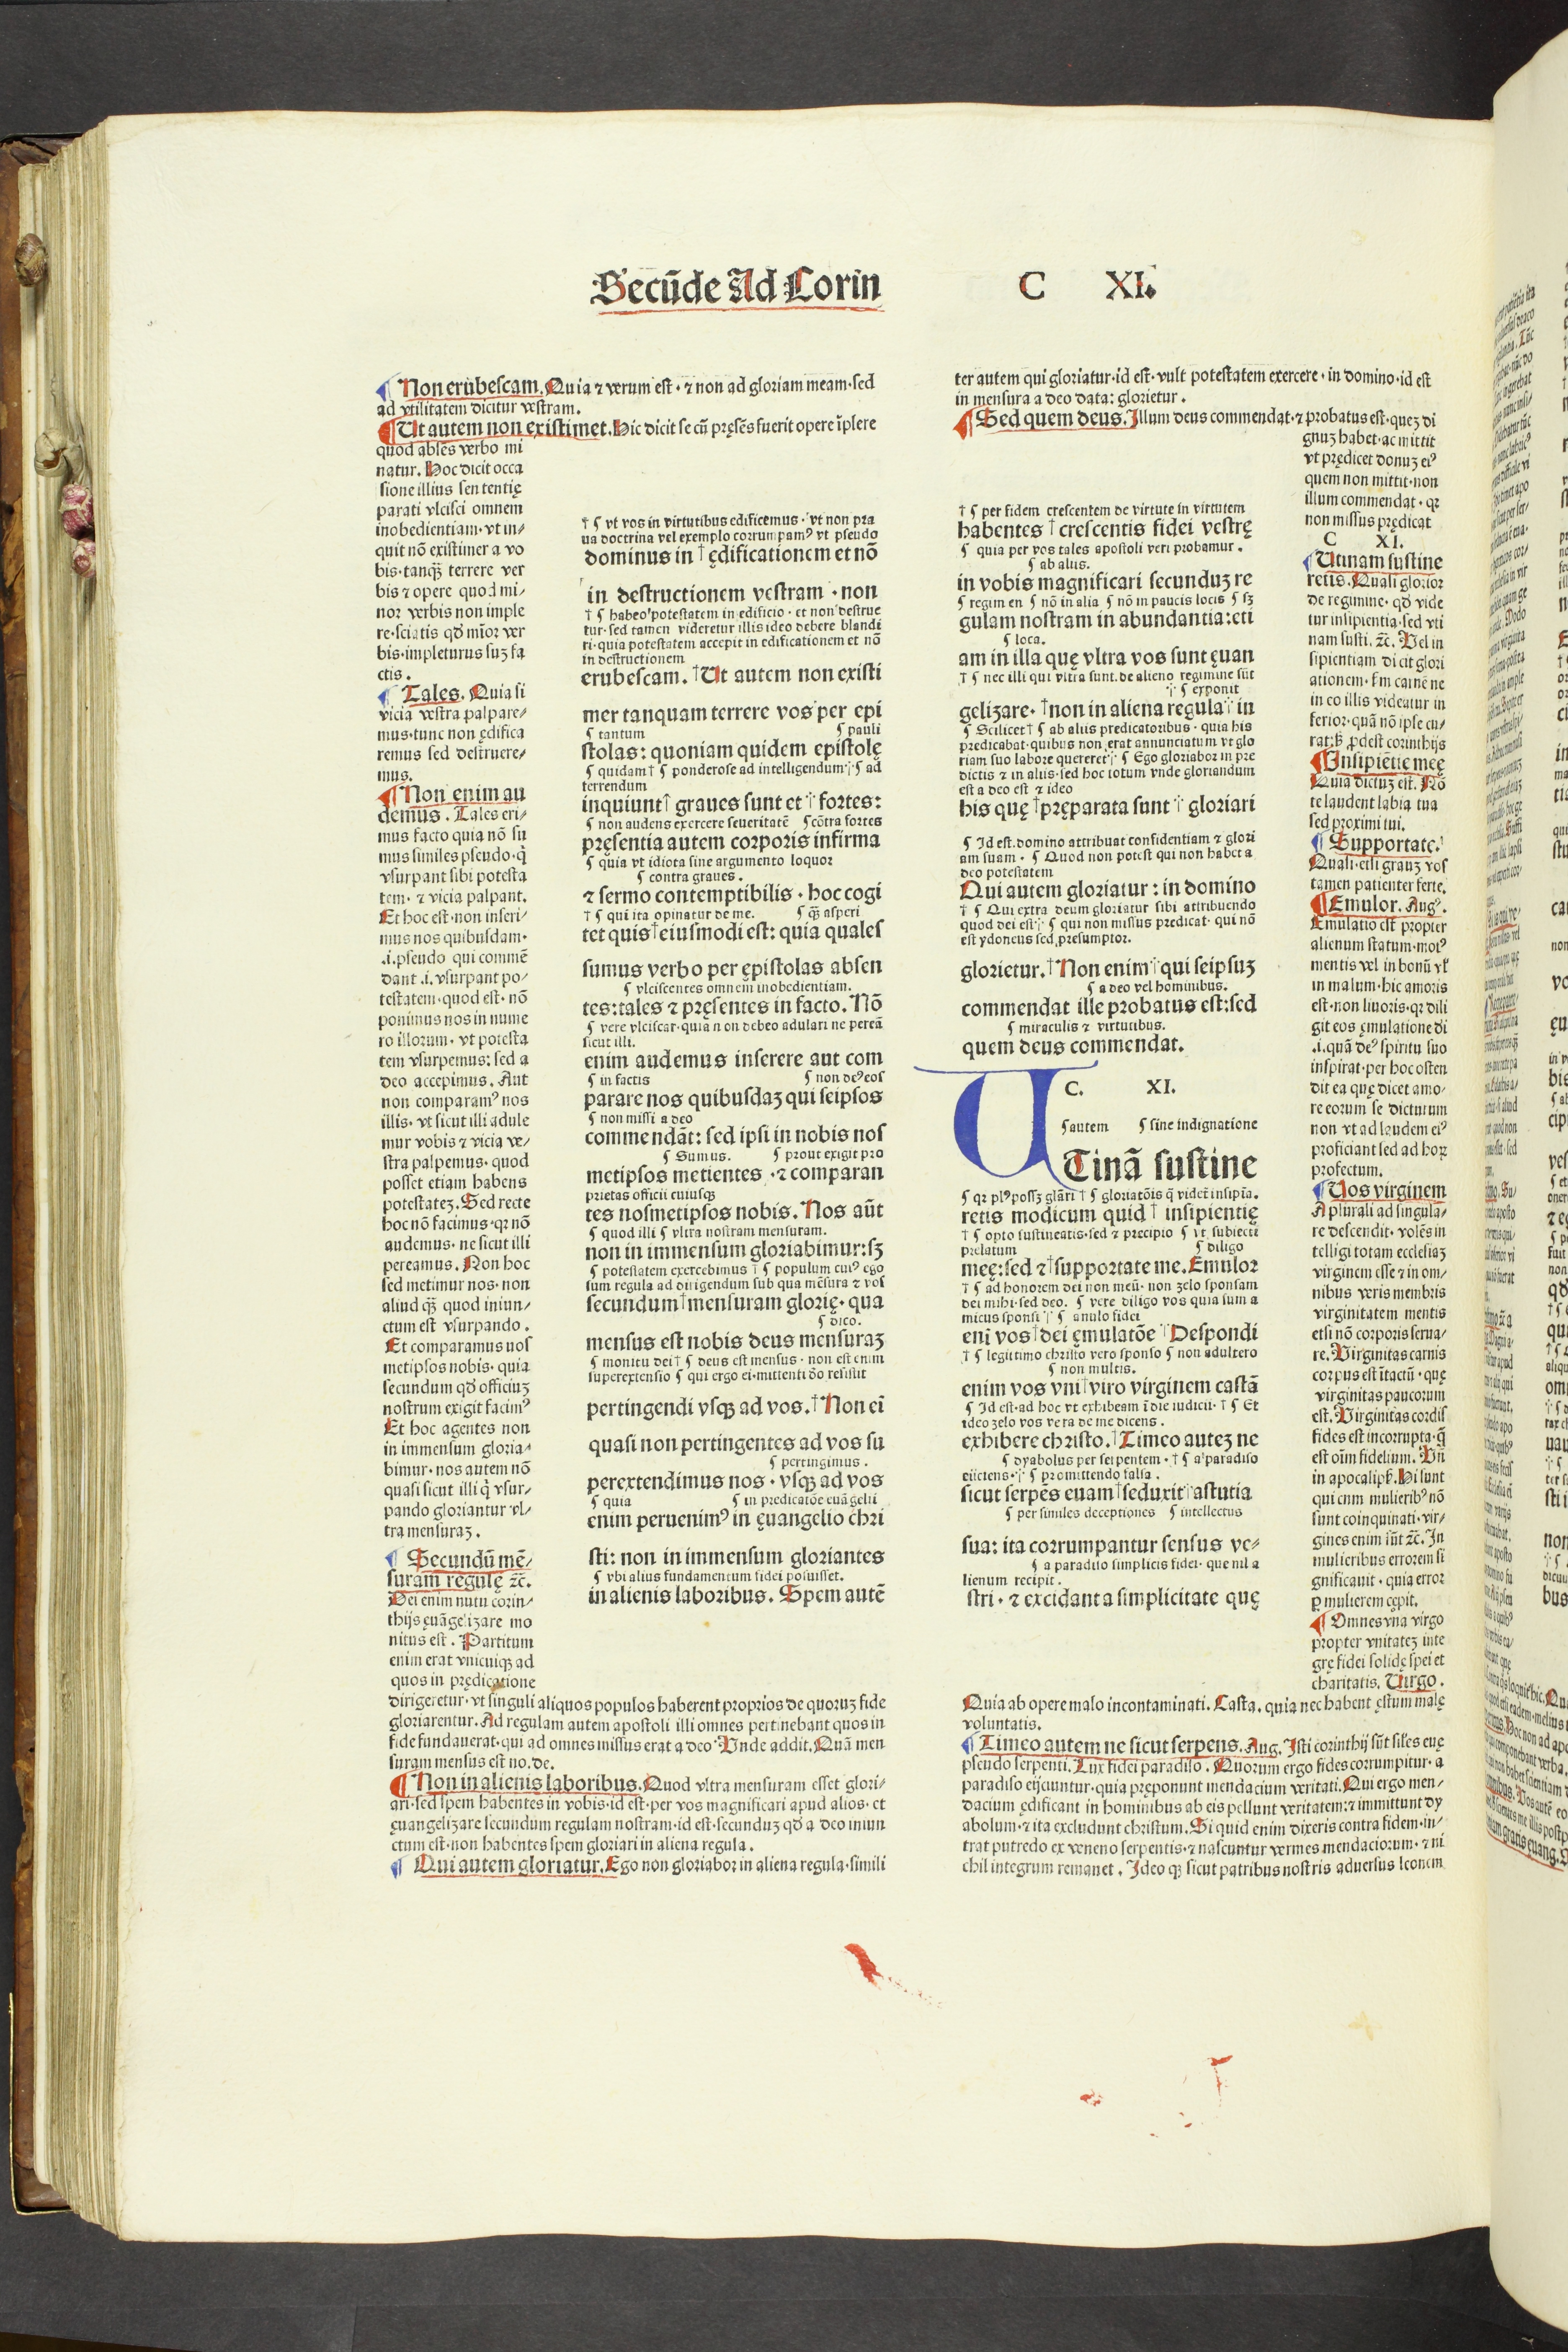 Secūde Ad Corin
C XI.
¶ Non erubescam. Quia ⁊ verum est · ⁊ non ad gloriam meam·sed
ad vtilitatem dicitur vestram.
¶ Ut autem non existimet. Hic dicit se cū pręsēs fuerit opere īplere
quod absēs verbo mi
natur. Hoc dicit occa
sione illius sententię
parati vlcisci omnem
inobedientiam·vt in⸗
quit nō existimer a vo
bis·tanqȝ̄ terrere ver
bis ⁊ opere quod mi⸗
nor verbis non imple
re·sciatis qđ mīor ver
bis·impleturus suȝ fa
ctis.
¶ Tales. Quia si
vicia vestra palpare⸗
mus·tunc non ędifica
remus sed destruere⸗
mus.
¶ Non enim au
demus. Tales eri⸗
mus facto quia nō su
mus similes pseudo·q̇
vsurpant sibi potesta
tem· ⁊ vicia palpant.
Et hoc est·non inseri⸗
mus nos quibusdam·
.i.pseudo qui commē
dant .i. vsurpant po⸗
testatem·quod est· nō
ponimus nos in nume
ro illorum· vt potesta
tem vsurpemus: sed a
deo accepimus. Aut
non comparamꝰ nos
illis· vt sicut illi adule
mur vobis ⁊ vicia ve⸗
stra palpemus· quod
posset etiam habens
potestateȝ. Sed recte
hoc nō facimus·qꝛ nō
audemus· ne sicut illi
pereamus. Non hoc
sed metimur nos· non
aliud qȝ̄ quod iniun⸗
ctum est vsurpando.
Et comparamus nos
metipsos nobis· quia
secundum qđ officiuȝ
nostrum exigit facimꝰ
Et hoc agentes non
in immensum gloria⸗
bimur· nos autem nō
quasi sicut illi q̇ vsur⸗
pando gloriantur vl⸗
tra mensuraȝ.
¶ Secundū mē⸗
suram regulę ⁊c̄.
Dei enim nutu corin⸗
thijs ęuāgelizare mo
nitus est. Partitum
enim erat vnicuiqȝ ad
quos in prędicatione
dirigeretur· vt singuli aliquos populos haberent proprios de quoruȝ fide
gloriarentur. Ad regulam autem apostoli illi omnes pertinebant quos in
fide fundauerat·qui ad omnes missus erat a deo· Unde addit. Quā men
suram mensus est no. de.
¶ Non in alienis laboribus. Quod vltra mensuram esset glori⸗
ari·sed spem habentes in vobis·id est·per vos magnificari apud alios· et
ęuangelizare secundum regulam nostram·id est·secunduȝ qđ a deo iniun
ctum est·non habentes spem gloriari in aliena regula.
¶ Qui autem gloriatur. Ego non gloriabor in aliena regula·simili
† ¶ vt vos in virtutibus edificemus· vt non pra
ua doctrina vel exemplo corrumpamꝰ vt pseudo
dominus in † ędificationem et nō
in destructionem vestram · non
† ¶ habeo potestatem in edificio · et non destrue
tur·sed tamen videretur illis ideo debere blandi
ri·quia potestatem accepit in edificationem et nō
in destructionem
erubescam. †Ut autem non existi
mer tanquam terrere vos per epi
¶ tantum ¶ pauli
stolas: quoniam quidem epistolę
¶ quidam † ¶ ponderose ad intelligendum ⁒ ¶ ad
terrendum
inquiunt† graues sunt et ⁒ fortes:
¶ non audens exercere seueritatē ¶ cōtra fortes
pręsentia autem corporis infirma
¶ quia vt idiota sine argumento loquor
¶ contra graues.
⁊ sermo contemptibilis · hoc cogi
† ¶ qui ita opinatur de me. ¶ qȝ̄ asperi
tet quis†eiusmodi est: quia quales
sumus verbo per ępistolas absen
¶ vlciscentes omnem inobedientiam.
tes:tales ⁊ pręsentes in facto. Nō
¶ vere vlciscar·quia non debeo adulari ne pereā
sicut illi.
enim audemus inserere aut com
¶ in factis ¶ non deꝰ eos
parare nos quibusdaȝ qui seipsos
¶ non missi a deo
commendāt: sed ipsi in nobis nos
¶ Sumus. ¶ prout exigit pro
metipsos metientes · ⁊ comparan
prietas officii cuiusqȝ
tes nosmetipsos nobis. Nos aūt
¶ quod illi ¶ vltra nostram mensuram.
non in immensum gloriabimur:sȝ
¶ potestatem exercebimus † ¶ populum cuiꝰ ego
sum regula ad dirigendum sub qua mēsura ⁊ vos
secundum†mensuram glorię· qua
¶ dico.
mensus est nobis deus mensuraȝ
¶ monitu dei † ¶ deus est mensus · non est enim
superextensio ¶ qui ergo ei·mittenti deo resistit
pertingendi vsqȝ ad vos.†Non eī
quasi non pertingentes ad vos su
¶ pertingimus.
perextendimus nos · vsqȝ ad vos
¶ quia ¶ in predicatōe euāgelii
enim peruenimꝰ in ęuangelio chri
sti: non in immensum gloriantes
¶ vbi alius fundamentum fidei posuisset.
in alienis laboribus. Spem autē
ter autem qui gloriatur·id est·vult potestatem exercere · in domino·id est
in mensura a deo data: glorietur.
¶ Sed quem deus. Illum deus commendat·⁊ probatus est·queȝ di
† ¶ per fidem crescentem de virtute in virtutem
habentes † crescentis fidei vestrę
¶ quia per vos tales apostoli veri probamur.
¶ ab aliis.
in vobis magnificari secunduȝ re
¶ regimen ¶ nō in alia ¶ nō in paucis locis ¶ sȝ
gulam nostram in abundantia:eti
¶ loca.
am in illa quę vltra vos sunt ęuan
† ¶ nec illi qui vltra sunt.de alieno regimine sūt
⁒ ¶ exponit
gelizare· †non in aliena regula ⁒ in
¶ Scilicet † ¶ ab aliis predicatoribus · quia his
predicabat·quibus non erat annunciatum vt glo
riam suo labore quereret ⁒ ¶ Ego gloriabor in pre
dictis ⁊ in aliis·sed hoc totum vnde gloriandum
est a deo est ⁊ ideo
his quę †pręparata sunt ⁒ gloriari
¶ Id est.domino attribuat confidentiam ⁊ glori
am suam · ¶ Quod non potest qui non habet a
deo potestatem
Qui autem gloriatur: in domino
† ¶ Qui extra deum gloriatur sibi attribuendo
quod dei est ⁒ ¶ qui non missus predicat· qui nō
est ydoneus sed presumptor.
glorietur.†Non enim ⁒ qui seipsuȝ
¶ a deo vel hominibus.
commendat ille probatus est:sed
¶ miraculis ⁊ virtutibus.
quem deus commendat.
C. XI.
¶ autem ¶ sine indignatione
UTinā sustine
¶ qꝛ plꝰ possȝ glāri † ¶ gloriatōis q̄ videt̄ insipīa.
retis modicum quid † insipientię
† ¶ opto sustineatis·sed ⁊ precipio ¶ vt subiecti
prelatum ¶ diligo
meę:sed ⁊†supportate me. Emulor
† ¶ ad honorem dei non meū· non zelo sponsam
dei mihi·sed deo. ¶ vere diligo vos quia sum a
micus sponsi ⁒ ¶ anulo fidei
enī vos†dei ęmulatōe ⁒Despondi
† ¶ legittimo christo vero sponso ¶ non adultero
¶ non multis.
enim vos vni†viro virginem castā
¶ Id est·ad hoc vt exhibeam ī die iudicii· † ¶ Et
ideo zelo vos vera de me dicens.
exhibere christo.†Timeo auteȝ ne
¶ dyabolus per serpentem · † ¶ a paradiso
eiiciens·⁒ ¶ promittendo falsa.
sicut serpēs euam†seduxit ⁒astutia
¶ per similes deceptiones ¶ intellectus
sua: ita corrumpantur sensus ve⸗
¶ a paradiso simplicis fidei· que nil a
lienum recipit.
stri · ⁊ excidant a simplicitate quę
gnuȝ habet·ac mittit
vt prędicet donuȝ eiꝰ
quem non mittit·non
illum commendat · qꝛ
non missus prędicat
C XI.
¶ Utinam sustine
retis. Quasi glorior
de regimine· qđ vide
tur insipientia·sed vti
nam susti. ⁊c̄. Vel in
sipientiam dicit glori
ationem· fm carnē ne
in eo illis videatur in
ferior·quā nō ipse cu⸗
rat:sꝫ ꝓdest corinthijs
¶ Insipiētie meę
Quia dictuȝ est. Nō
te laudent labia tua
sed proximi tui.
¶ Supportate.
Quasi·etsi grauȝ vos
tamen patienter ferte.
¶ Emulor. Augꝰ.
Emulatio est propter
alienum statum·motꝰ
mentis vel in bonū vľ
in malum·hic amoris
est·non liuoris·qꝛ dili
git eos ęmulatione di
.i.quā deꝰ spiritu suo
inspirat·per hoc osten
dit ea quę dicet amo⸗
re eorum se dicturum
non vt ad laudem eiꝰ
proficiant sed ad hoꝝ
profectum.
¶ Uos virginem
A plurali ad singula⸗
re descendit· volēs in
telligi totam ecclesiaȝ
virginem esse ⁊ in om⸗
nibus veris membris
virginitatem mentis
etsi nō corporis serua⸗
re. Virginitas carnis
corpus est ītactū · quę
virginitas paucorum
est. Virginitas cordis
fides est incorrupta·q̄
est oīm fidelium. Vn̄
in apocalipſ. Hi sunt
qui cum mulieribꝰ nō
sunt coinquinati· vir⸗
gines enim sūt ⁊c̄. In
mulieribus errorem si
gnificauit · quia error
ꝑ mulierem cępit.
¶ Omnes vna virgo
propter vnitateȝ inte
grę fidei solidę spei et
charitatis. Uirgo.
Quia ab opere malo incontaminati. Casta. quia nec habent ęstum malę
voluntatis.
¶ Timeo autem ne sicut serpens. Aug. Isti corinthij sūt siles euę
pseudo serpenti. Lux fidei paradiso. Quorum ergo fides corrumpitur· a
paradiso eijciuntur·quia pręponunt mendacium veritati. Qui ergo men⸗
dacium ędificant in hominibus ab eis pellunt veritatem:⁊ immittunt dy
abolum·⁊ ita excludunt christum. Si quid enim dixeris contra fidem·in⸗
trat putredo ex veneno serpentis·⁊ nascuntur vermes mendaciorum· ⁊ ni
chil integrum remanet. Ideo qȝ sicut patribus nostris aduersus leonem